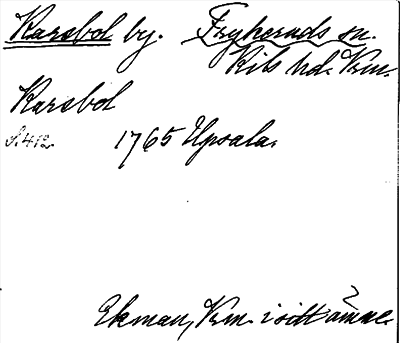 Karsbol by. Frykeruds sn.
Kils hd. Vrm.
Karsbol
S. 412. 1765 Upsala.
Ekman, Vrm. i sitt ämne.